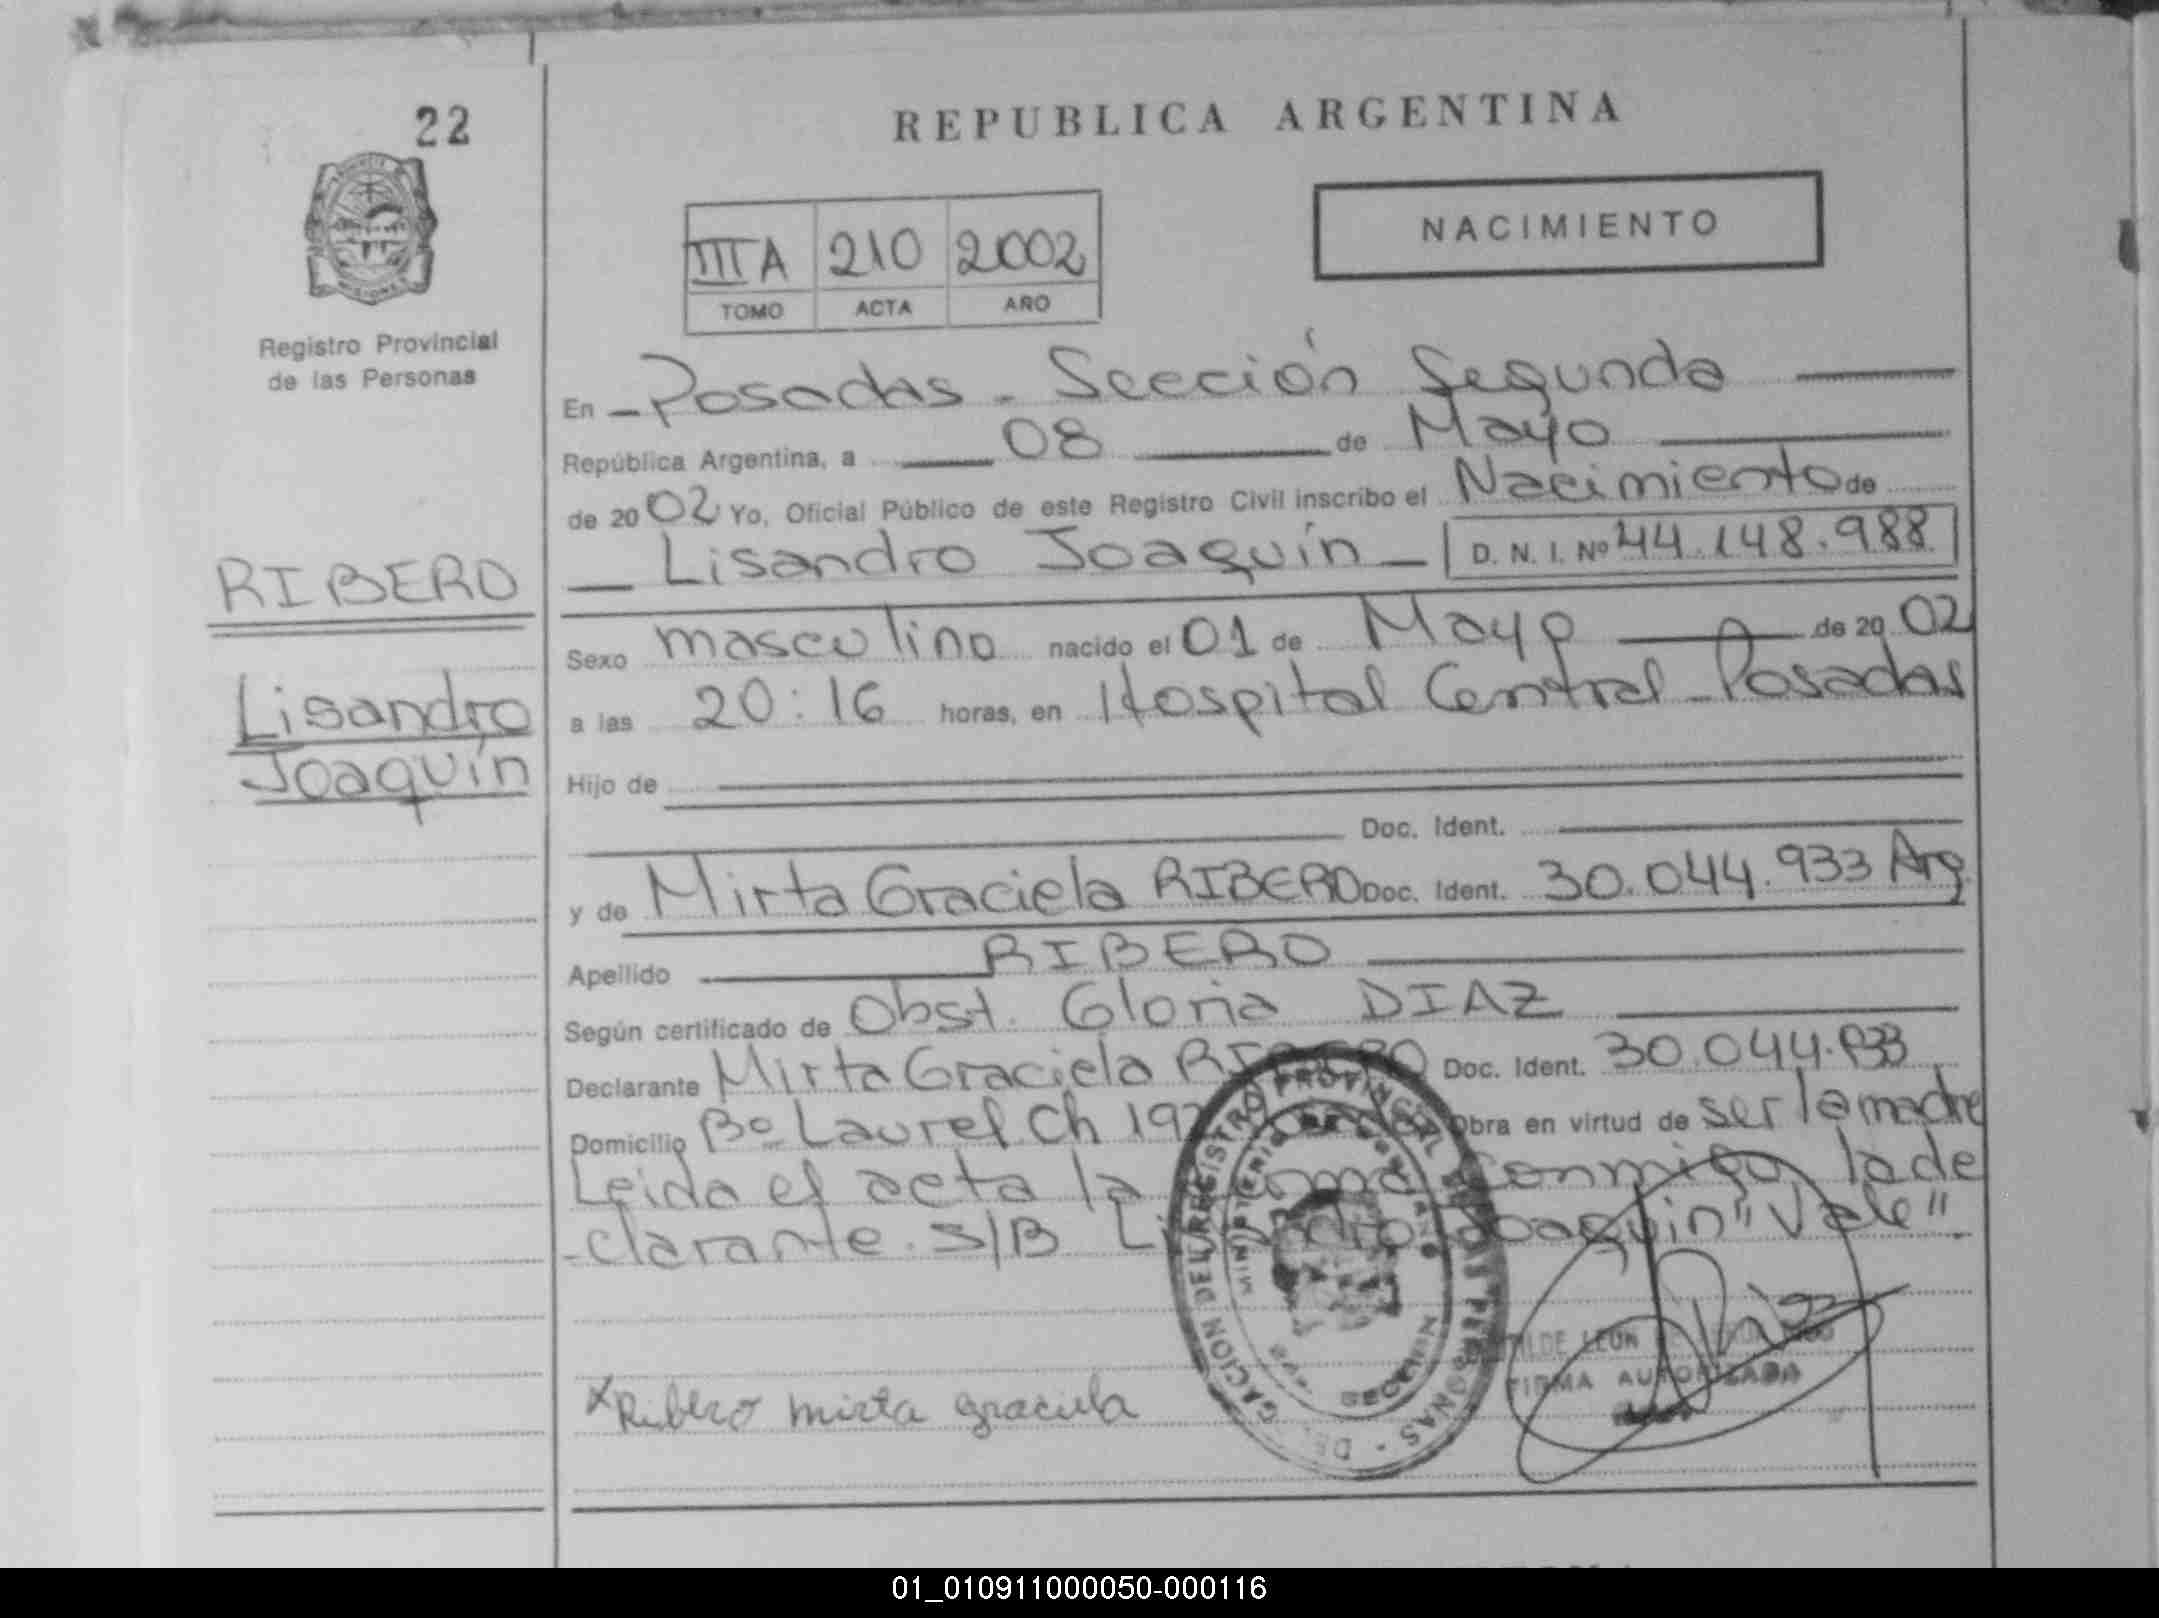 22
REPUBLICA ARGENTINA
NACIMIENTO
IIIA 210 2002
TOMO ACTA AÑO
Registro Provincial
de las Personas
En Posadas - Sección Segunda
República Argentina, a 08 de Mayo
de 2002 Yo, Oficial Público de este Registro Civil inscribo el Nacimiento de
Lisandro Joaquín D. N. I. Nº 44.148.988
RIBERO
Lisandro
Joaquín
Sexo masculino nacido el 01 de Mayo de 2002
a las 20:16 horas, en Hospital Central - Posadas
Hijo de
Doc. Ident.
y de Mirta Graciela RIBERO Doc. Ident. 30.044.933 Arg
Apellido RIBERO
Según certificado de Obst. Gloria DIAZ
Declarante Mirta Graciela RIBERO Doc. Ident. 30.044.933
Domicilio Bº Laurel Ch 19 Obra en virtud de ser la madre
Leida el acta la conmigo la de
clarante. S/B Lisandro Joaquin "Vale".
x Ribero mirta graciela
FIRMA AUTORIZADA
01_010911000050-000116